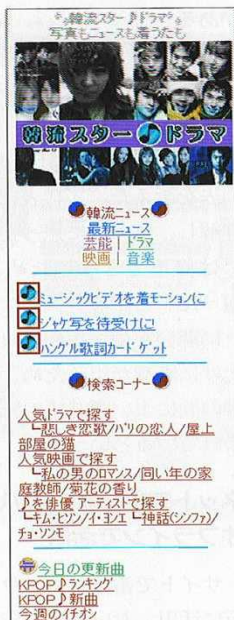 韓流スター♪ドラマ
写真もニュースも着うたも
韓流スター♪ドラマ
韓流ニュース
最新ニュース
芸能｜ドラマ
映画｜音楽
ミュージックビデオを着モーションに
ジャケ写を待受けに!
ハングル歌詞カードゲット
検索コーナー
人気ドラマで探す
┗悲しき恋歌/パリの恋人/屋上
部屋の猫
人気映画で探す
┗私の男のロマンス/同い年の家
庭教師/菊花の香り
♪を俳優 アーティストで探す
┗キム・ヒソン/イ・ヨンエ ┗神話(シンファ)/
チョ・ソンモ
今日の更新曲
KPOP♪ランキング
KPOP♪新曲
今週のイチオシ